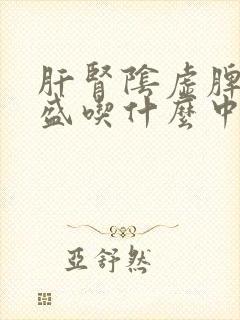 肝腎陰虛脾
盛喫什麼中
亞舒然